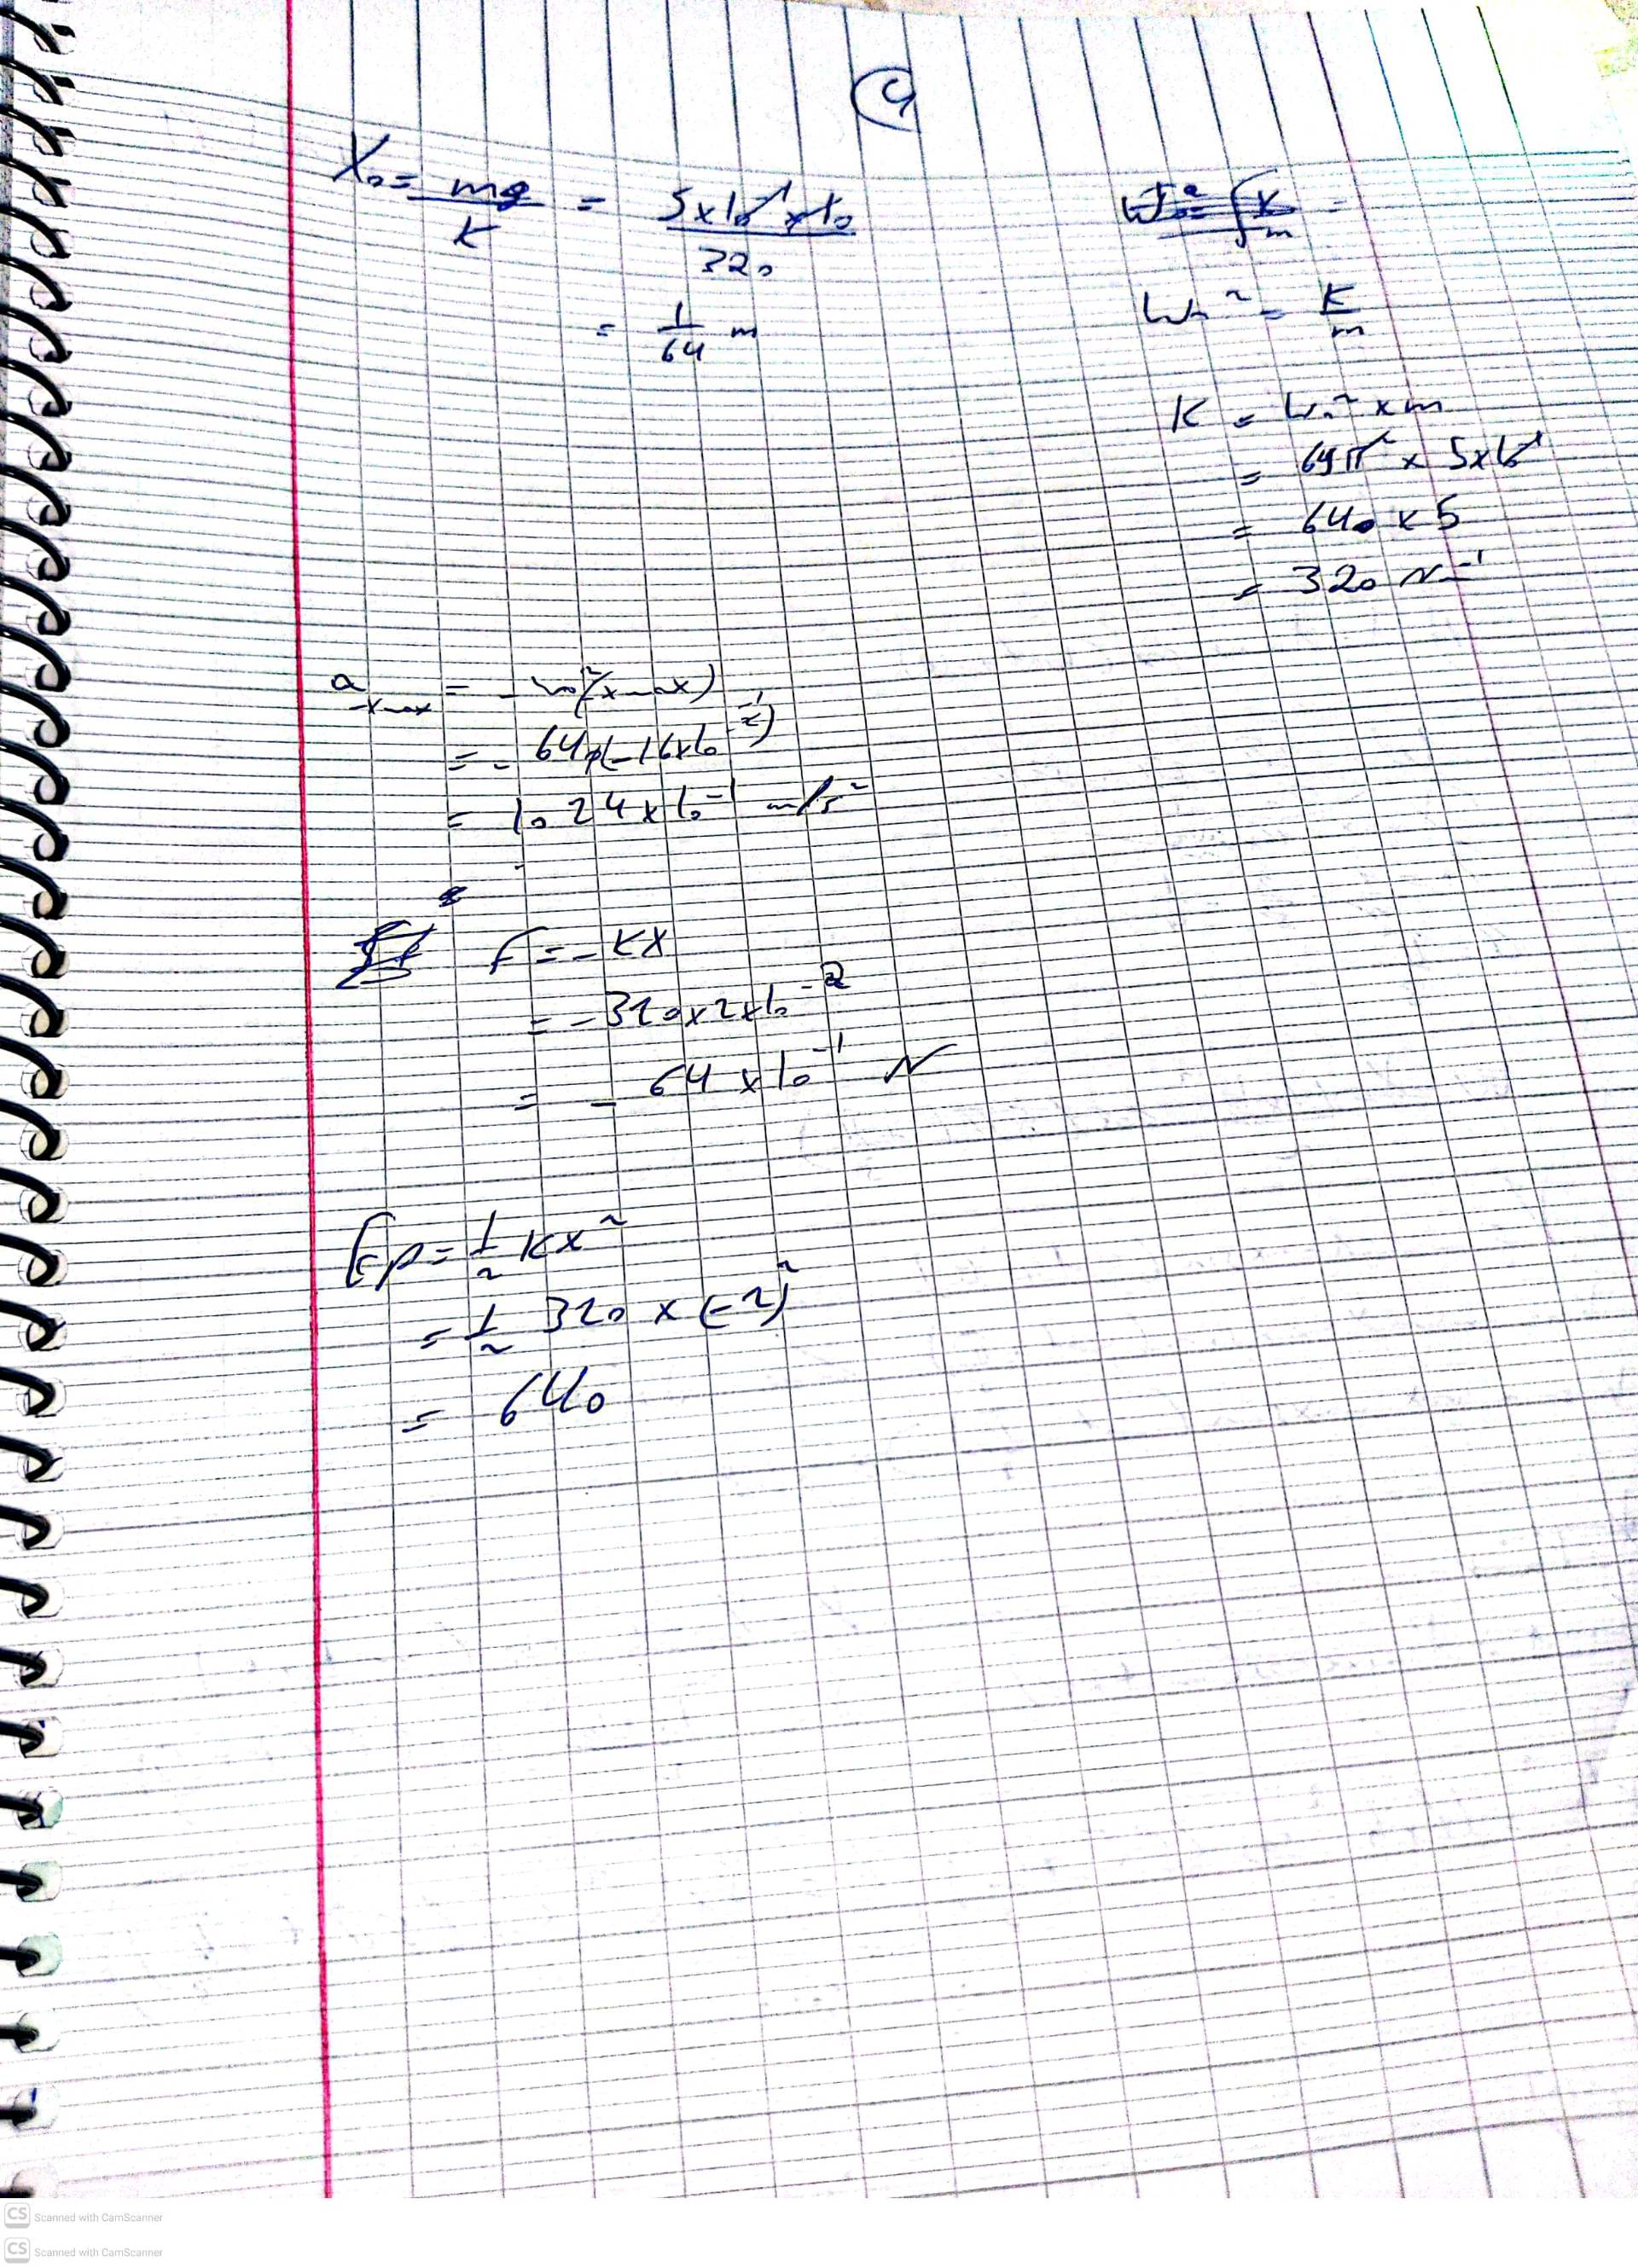 4
X₀ = mg/K = 5x10⁻¹x10/320
= 1/64 m
W₀² = √K/m =
W₀² = K/m
K = W₀² x m
= 64π² x 5x10⁻¹
= 640 x 5
= 320 Nm⁻¹
a-xmax = - w₀²(xmax)
= - 640(-16x10⁻²)
= 1024x10⁻¹ m/s²
F = - KX
= - 320x2x10⁻²
= - 64x10⁻¹ N
Ep = 1/2 Kx²
= 1/2 320 x (-2)²
= 640
CS Scanned with CamScanner
CS Scanned with CamScanner